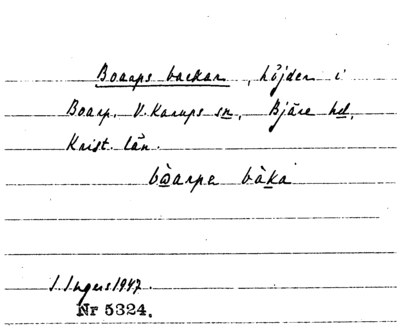 Boarps backar, höjder i
Boarp, V. Karups sn, Bjäre hd,
Krist. län.
bòarpe bàka
I. Ingers 1947.
Nr 5324.